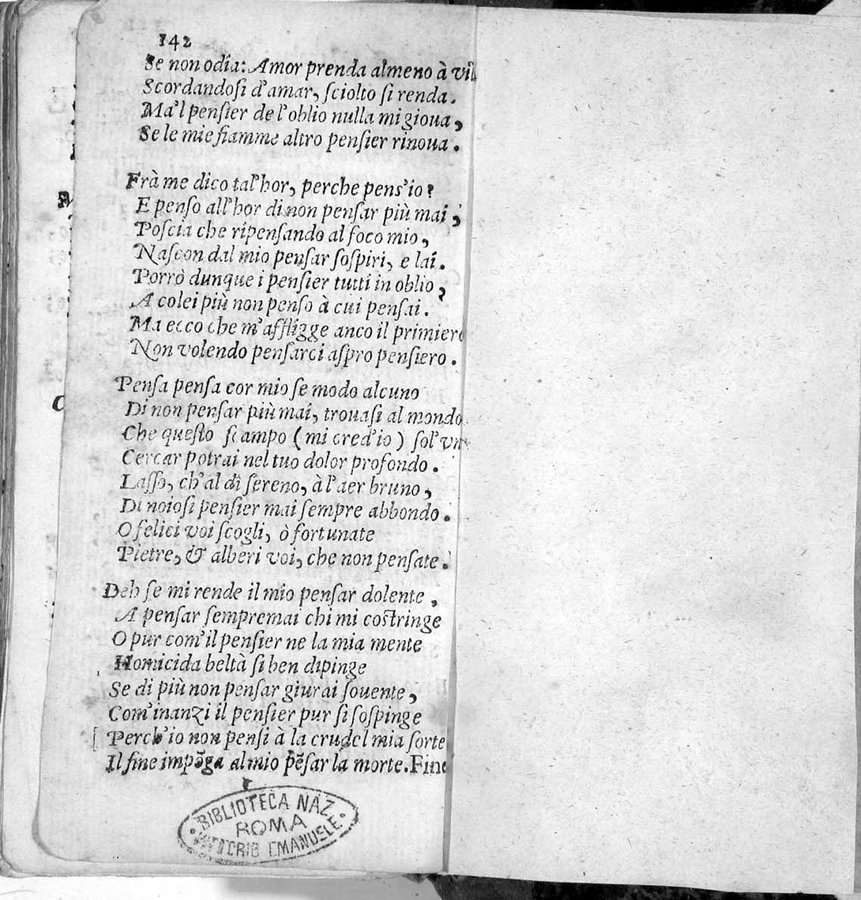 142
Se non odia: Amor prenda almeno à vil
Scordandosi d'amar, sciolto si renda.
Ma'l pensier de l'oblio nulla mi gioua,
Se le mie fiamme altro pensier rinoua.
Frà me dico tal'hor, perche pens'io?
E penso all'hor di non pensar più mai,
Poscia che ripensando al foco mio,
Nascon dal mio pensar sospiri, e lai.
Porrò dunque i pensier tutti in oblio,
A colei più non penso à cui pensai.
Ma ecco che m'affligge anco il primiero
Non volendo pensarci aspro pensiero.
Pensa pensa cor mio se modo alcuno
Di non pensar più mai, trouasi al mondo
Che questo scampo (mi cred'io) sol'vn
Cercar potrai nel tuo dolor profondo.
Lasso, ch'al dì sereno, à l'aer bruno,
Di noiosi pensier mai sempre abbondo.
O felici voi scogli, ò fortunate
Pietre, & alberi voi, che non pensate.
Deh se mi rende il mio pensar dolente,
A pensar sempremai chi mi costringe
O pur com'il pensier ne la mia mente
Homicida beltà si ben dipinge
Se di più non pensar giurai souente,
Com'inanzi il pensier pur si sospinge
Perch'io non pensi à la crudel mia sorte
Il fine impōga al mio pēsar la morte. Fine
BIBLIOTECA NAZ.
ROMA
VITTORIO EMANUELE